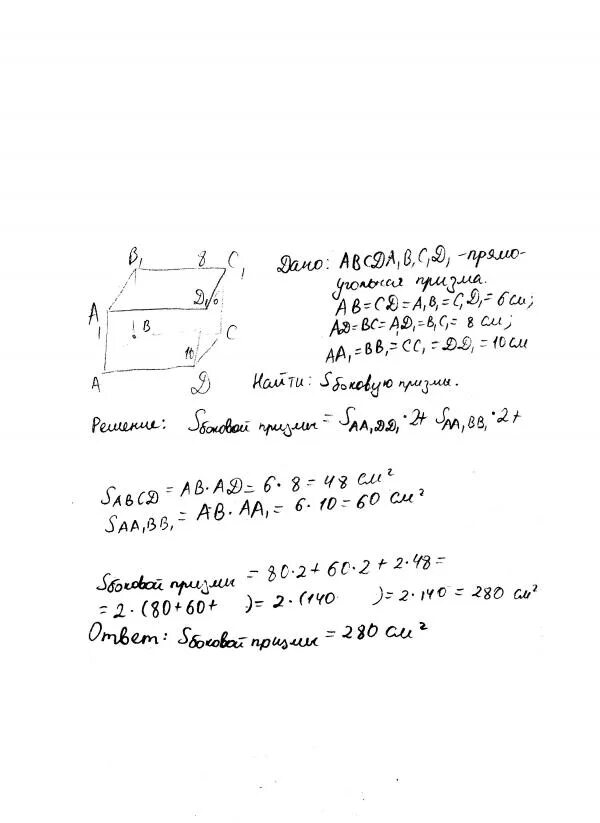 B₁ 8 C₁
A₁ D₁ 6
B C
10
A D
Дано: ABCDA₁B₁C₁D₁ - прямо-
угольная призма.
AB=CD=A₁B₁=C₁D₁=6 см;
AD=BC=A₁D₁=B₁C₁=8 см;
AA₁=BB₁=CC₁=DD₁=10 см
Найти: Sбоковую призмы.
Решение: Sбоковой призмы = SAA₁DD₁·2+ SAA₁BB₁·2+
SABCD = AB·AD= 6·8=48 см²
SAA₁BB₁= AB·AA₁= 6·10=60 см²
Sбоковой призмы = 80·2+60·2+2·48=
=2·(80+60+ )=2·(140 )=2·140=280 см²
Ответ: Sбоковой призмы=280 см²